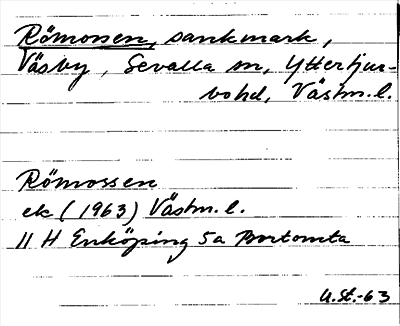 Römossen, sankmark,
Väsby, Sevalla sn, Yttertjur-
bohd, Västm. l.
Römossen
ek (1963) Västm. l.
11 H Enköping 5a Bortomta
U.St.-63